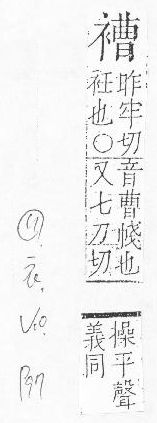 褿
昨牢切音曹帴也
衽也〇又七刀切
操平聲
義同
⑪.
衣.
V10.